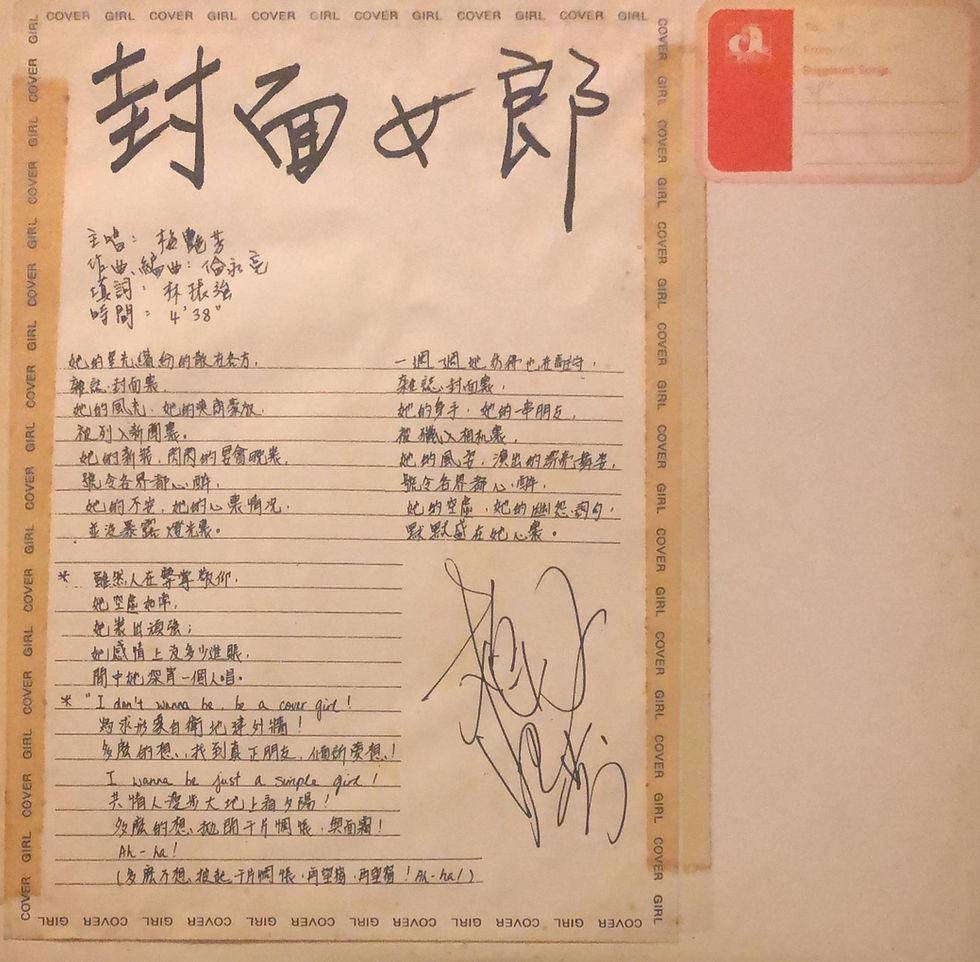 COVER GIRL COVER GIRL COVER GIRL COVER GIRL COVER GIRL COVER GIRL
封面女郎
主唱：梅艷芳
作曲、編曲：倫永亮
填詞：林振強
時間：4'38"
她的星光繽紛的散在各方，
雜誌封面裏，
她的風光，她的
被列入新聞裏。
她的新裝，閃閃的晚裝，
號令各界都心醉，
她的不安，她的心裏情況，
並沒暴露燈光裏。
一週一週她仍得也在
雜誌封面裏，
她的身手，她的一串朋友，
被攝入相机裏，
她的風姿，演出的舞姿，
號令各界都心醉，
她的空虛，她的幽怨詞句，
默默盛在她心裏。
* 雖然人在擊掌敬仰，
她空虛如常，
她裝出頑強；
她感情上沒多少進賬，
間中她深宵一個人唱。
* "I don't wanna be, be a cover girl!
為求形象自衛地建外牆！
多麼的想，找到真正朋友，傾訴夢想！
I wanna be just a simple girl!
共情人漫步大地上看夕陽！
多麼的想，拋開千片惆悵，與面霜！
Ah-ha!
(多麼不想，披起千片惆悵，再望窗，再望窗！Ah-ha!)
COVER GIRL COVER GIRL COVER GIRL COVER GIRL COVER GIRL COVER GIRL
Suggested Songs